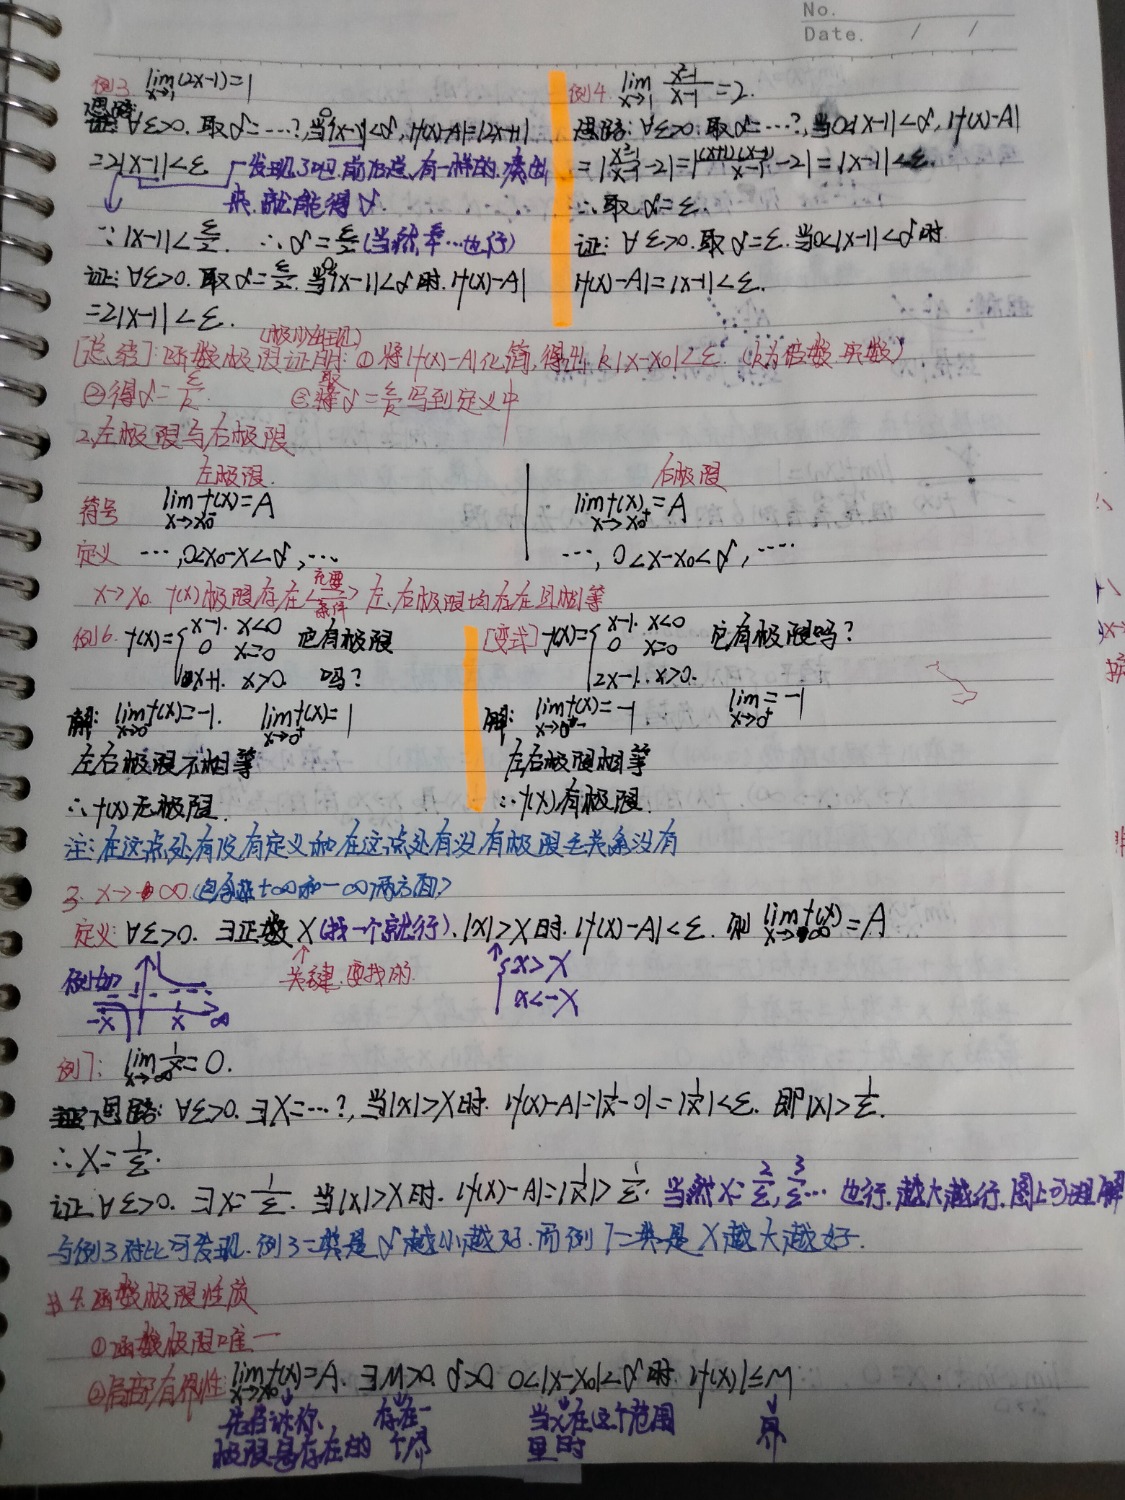 No.
Date.
例3. lim x→1 (2x-1)=1
思路: ∀ε>0. 取δ=…?, 当0<|x-1|<δ, |f(x)-A|=|2x-1-1|
=2|x-1|<ε 发现了吧,前后总有一样的,凑出
来,就能得δ.
∵|x-1|<ε/2. ∴δ=ε/2(当然,…也行)
证: ∀ε>0. 取δ=ε/2. 当0<|x-1|<δ时. |f(x)-A|
=2|x-1|<ε.
例4. lim x→1 (x²-1)/(x-1)=2.
思路: ∀ε>0. 取δ=…?, 当0<|x-1|<δ, |f(x)-A|
=|(x²-1)/(x-1)-2|=|(x+1)(x-1)/(x-1)-2|=|x-1|<ε.
∴取δ=ε.
证: ∀ε>0. 取δ=ε. 当0<|x-1|<δ时
|f(x)-A|=|x-1|<ε.
[总结]: 函数极限证明: (极少出现) ①将|f(x)-A|化简,得出k|x-x0|<ε (k为倍数,实数)
②得δ=ε/k. ③将取δ=ε/k写到定义中
2.左极限与右极限
左极限. 右极限
符号 lim x→x0⁻ f(x)=A lim x→x0⁺ f(x)=A
定义 …,0<x0-x<δ,… …, 0<x-x0<δ,…
x→x0. f(x)极限存在<充要条件>左、右极限均存在且相等
例6. f(x)={x-1. x<0 它有极限
0 x=0
x+1. x>0. 吗?
解: lim x→0⁻ f(x)=-1. lim x→0⁺ f(x)=1
左右极限不相等
∴f(x)无极限.
[变式] f(x)={x-1. x<0 它有极限吗?
0 x=0
2x-1. x>0.
解: lim x→0⁻ f(x)=-1 lim x→0⁺ =-1
左右极限相等
∴f(x)有极限.
注:在这点处有没有定义和在这点处有没有极限毛关系没有
3. x→∞(包含+∞和-∞两方面)
定义: ∀ε>0. ∃正数X(找一个就行). |x|>X时. |f(x)-A|<ε. 则 lim x→∞ f(x)=A
例如 关键.要找的. {x>X
x<-X
-X X ∞
例7: lim x→∞ 1/x=0.
思路: ∀ε>0. ∃X=…?, 当|x|>X时. |f(x)-A|=|1/x-0|=|1/x|<ε. 即|x|>1/ε.
∴X=1/ε.
证 ∀ε>0. ∃X=1/ε. 当|x|>X时. |f(x)-A|=|1/x|>1/ε. 当然X=2/ε,3/ε…也行.越大越行.图上可理解
与例3对比可发现.例3一类是δ越小越好.而例7一类是X越大越好.
4.函数极限性质
①函数极限唯一
②局部有界性: lim x→x0 f(x)=A. ∃M>0. δ>0 0<|x-x0|<δ时. |f(x)|≤M
先告诉你、 存在一 当x在这个范围 界
极限是存在的 个界 里时